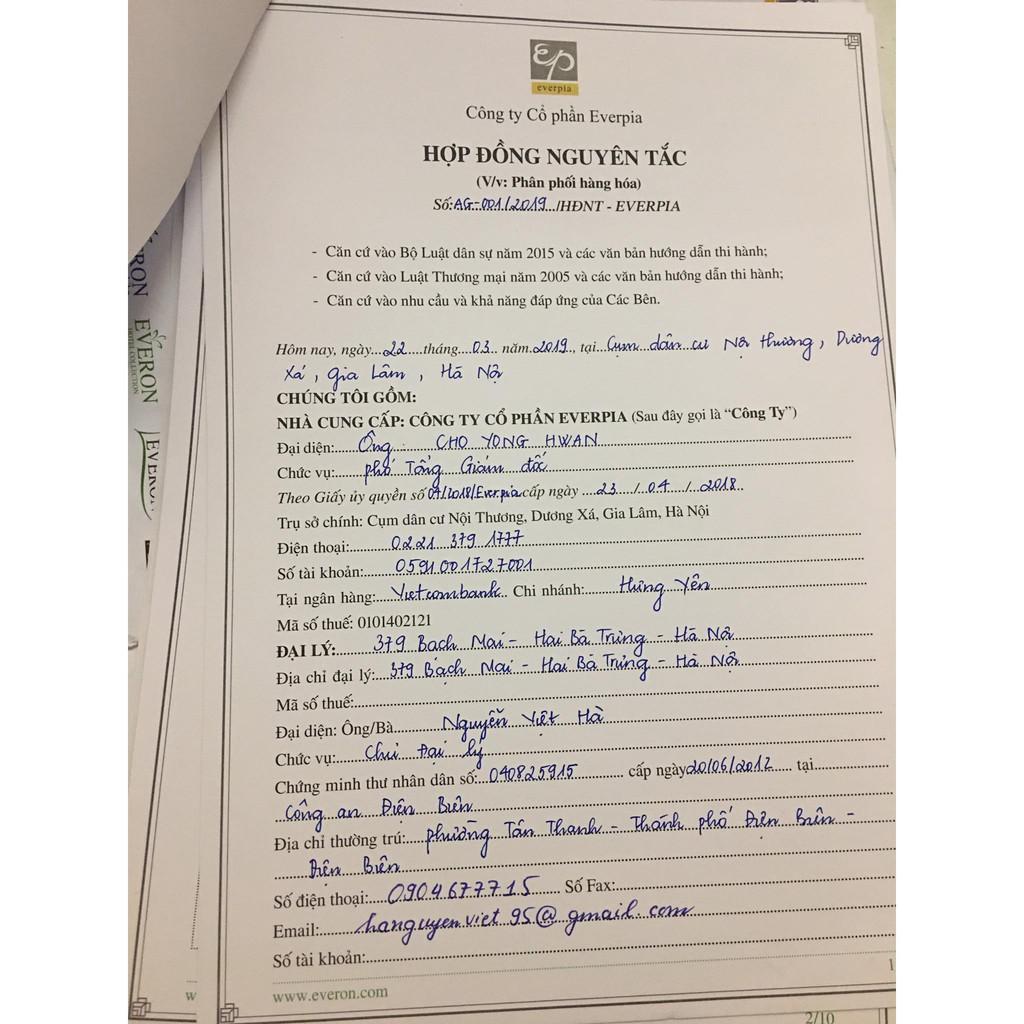 everpia
Công ty Cổ phần Everpia
HỢP ĐỒNG NGUYÊN TẮC
(V/v: Phân phối hàng hóa)
Số:AG-001/2019../HĐNT - EVERPIA
- Căn cứ vào Bộ Luật dân sự năm 2015 và các văn bản hướng dẫn thi hành;
- Căn cứ vào Luật Thương mại năm 2005 và các văn bản hướng dẫn thi hành;
- Căn cứ vào nhu cầu và khả năng đáp ứng của Các Bên.
Hôm nay, ngày...22....tháng...03.. năm.2019., tại...Cụm dân cư Nội Thương, Dương
Xá, Gia Lâm, Hà Nội
CHÚNG TÔI GỒM:
NHÀ CUNG CẤP: CÔNG TY CỔ PHẦN EVERPIA (Sau đây gọi là “Công Ty”)
Đại diện:....Ông CHO YONG HWAN
Chức vụ:....phó Tổng Giám đốc
Theo Giấy ủy quyền số 04/2018/Everpia cấp ngày ....23..../..04..../..2018..
Trụ sở chính: Cụm dân cư Nội Thương, Dương Xá, Gia Lâm, Hà Nội
Điện thoại:....0221 379 1777
Số tài khoản:....0591001727001
Tại ngân hàng:...Vietcombank.. Chi nhánh:....Hưng Yên
Mã số thuế: 0101402121
ĐẠI LÝ:....379 Bạch Mai - Hai Bà Trưng - Hà Nội
Địa chỉ đại lý:...379 Bạch Mai - Hai Bà Trưng - Hà Nội
Mã số thuế:
Đại diện: Ông/Bà....Nguyễn Việt Hà
Chức vụ:....Chủ Đại lý
Chứng minh thư nhân dân số:..040825915.......... cấp ngày20/06/2012.... tại
Công an Điện Biên
Địa chỉ thường trú:...phường Tân Thanh - Thành phố Điện Biên -
Điện Biên
Số điện thoại:...0904677715..... Số Fax:
Email:....hanguyenviet95@gmail.com
Số tài khoản:
1
www.everon.com
2/10
w
EVERON
HOTEL COLLECTION